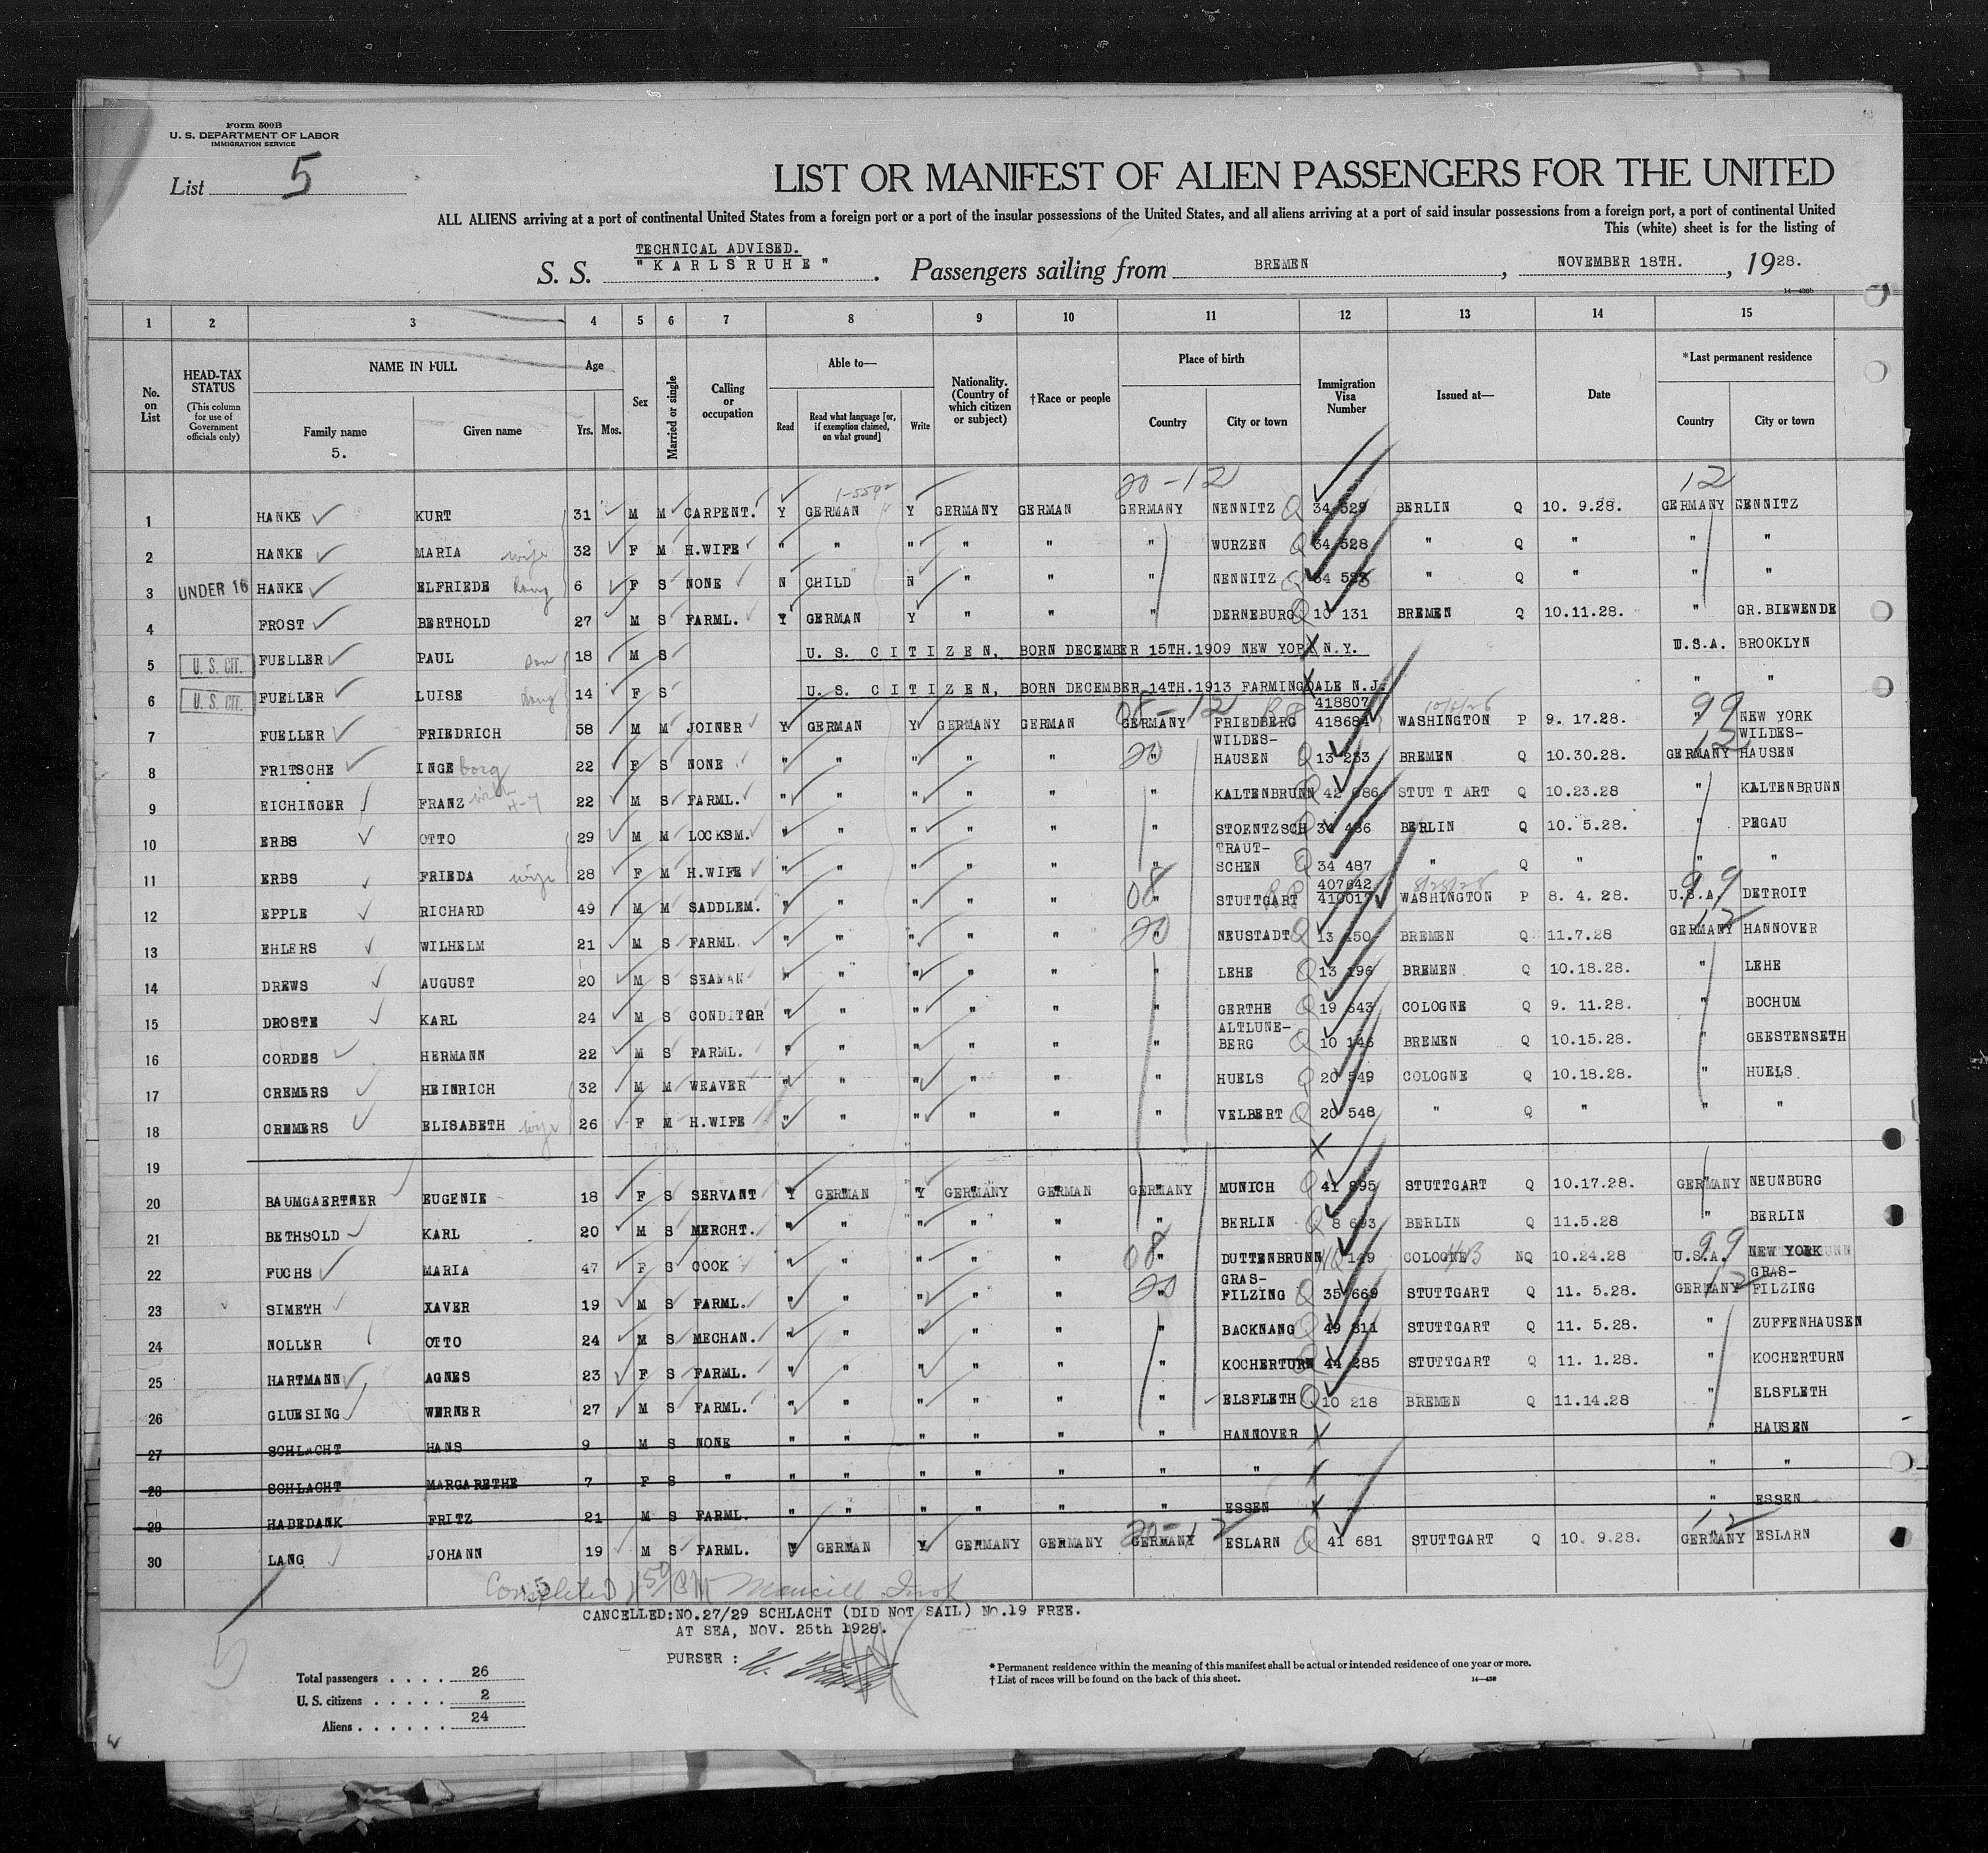 Form 500B
U. S. DEPARTMENT OF LABOR
IMMIGRATION SERVICE
List 5
LIST OR MANIFEST OF ALIEN PASSENGERS FOR THE UNITED
ALL ALIENS arriving at a port of continental United States from a foreign port or a port of the insular possessions of the United States, and all aliens arriving at a port of said insular possessions from a foreign port, a port of continental United
This (white) sheet is for the listing of
TECHNICAL ADVISED.
S. S. "KARLSRUHE". Passengers sailing from BREMEN, NOVEMBER 18TH., 1928.
1 2 3 4 5 6 7 8 9 10 11 12 13 14 15
No. on List
HEAD-TAX STATUS
(This column for use of Government officials only)
NAME IN FULL
Family name
5.
Given name
Age
Yrs. Mos.
Sex
Married or single
Calling or occupation
Able to—
Read
Read what language [or, if exemption claimed, on what ground]
Write
Nationality. (Country of which citizen or subject)
†Race or people
Place of birth
Country
City or town
Immigration Visa Number
Issued at—
Date
*Last permanent residence
Country
City or town
20-12 12
1 HANKE KURT 31 M M CARPENT. Y GERMAN Y GERMANY GERMAN GERMANY NENNITZ Q 34 529 BERLIN Q 10. 9.28. GERMANY NENNITZ
2 HANKE MARIA wife 32 F M H.WIFE " " " " " " WURZEN Q 34 528 " Q " " "
3 UNDER 16 HANKE ELFRIEDE 6 F S NONE N CHILD N " " " NENNITZ Q " Q " " "
4 FROST BERTHOLD 27 M S FARML. Y GERMAN Y " " " DERNEBURG Q 10 131 BREMEN Q 10.11.28. " GR.BIEWENDE
5 U. S. CIT. FUELLER PAUL 18 M S U. S. CITIZEN, BORN DECEMBER 15TH.1909 NEW YORK N.Y. U.S.A. BROOKLYN
6 U. S. CIT. FUELLER LUISE 14 F S U. S. CITIZEN, BORN DECEMBER 14TH.1913 FARMINGDALE N.J. " "
7 FUELLER FRIEDRICH 58 M M JOINER Y GERMAN Y GERMANY GERMAN GERMANY FRIEDBERG 418807 418684 WASHINGTON P 9. 17.28. " 99 NEW YORK
8 FRITSCHE INGEborg 22 F S NONE " " " " " 20 " WILDES-HAUSEN Q 13 233 BREMEN Q 10.30.28. GERMANY 12 WILDES-HAUSEN
9 EICHINGER FRANZ 22 M S FARML. " " " " " " KALTENBRUNN Q 42 086 STUT T ART Q 10.23.28 " KALTENBRUNN
10 ERBS OTTO 29 M M LOCKSM. " " " " " " STOENTZSCH Q 34 486 BERLIN Q 10. 5.28. " PEGAU
11 ERBS FRIEDA wife 28 F M H.WIFE " " " " " " TRAUT-SCHEN Q 34 487 " Q " " "
12 EPPLE RICHARD 49 M M SADDLEM. " " " " " 08 " STUTTGART 407642 410017 WASHINGTON P 8. 4. 28. U.S.A. 99 DETROIT
13 EHLERS WILHELM 21 M S FARML. " " " " " 20 " NEUSTADT Q 13 450 BREMEN Q 11.7.28 GERMANY 12 HANNOVER
14 DREWS AUGUST 20 M S SEAMAN " " " " " " LEHE Q 13 196 BREMEN Q 10.18.28. " LEHE
15 DROSTE KARL 24 M S CONDITOR " " " " " " GERTHE Q 19 643 COLOGNE Q 9. 11.28. " BOCHUM
16 CORDES HERMANN 22 M S FARML. " " " " " " ALTLUNE-BERG Q 10 146 BREMEN Q 10.15.28. " GEESTENSETH
17 CREMERS HEINRICH 32 M M WEAVER " " " " " " HUELS Q 20 549 COLOGNE Q 10.18.28. " HUELS
18 CREMERS ELISABETH wife 26 F M H.WIFE " " " " " " VELBERT Q 20 548 " Q " " "
19
20 BAUMGAERTNER EUGENIE 18 F S SERVANT Y GERMAN Y GERMANY GERMAN GERMANY MUNICH Q 41 895 STUTTGART Q 10.17.28. GERMANY NEUNBURG
21 BETHSOLD KARL 20 M S MERCHT. " " " " " " BERLIN Q 8 693 BERLIN Q 11.5.28 " BERLIN
22 FUCHS MARIA 47 F S COOK " " " " " 08 " DUTTENBRUNN NQ 149 COLOGNE NQ 10.24.28 U.S.A. 99 NEW YORK
23 SIMETH XAVER 19 M S FARML. " " " " " 20 " GRAS-FILZING Q 35 669 STUTTGART Q 11. 5.28. GERMANY 12 GRAS-FILZING
24 NOLLER OTTO 24 M S MECHAN. " " " " " " BACKNANG Q 49 811 STUTTGART Q 11. 5.28. " ZUFFENHAUSEN
25 HARTMANN AGNES 23 F S FARML. " " " " " " KOCHERTURN Q 44 285 STUTTGART Q 11. 1.28. " KOCHERTURN
26 GLUESING WERNER 27 M S FARML. " " " " " " ELSFLETH Q 10 218 BREMEN Q 11.14.28 " ELSFLETH
27 SCHLACHT HANS 9 M S NONE " " " " " " HANNOVER " HAUSEN
28 SCHLACHT MARGARETHE 7 F S " " " " " " " " " "
29 HABEDANK FRITZ 21 M S FARML. " " " " " " ESSEN " ESSEN
30 LANG JOHANN 19 M S FARML. Y GERMAN Y GERMANY GERMANY GERMANY ESLARN Q 41 681 STUTTGART Q 10. 9.28. GERMANY ESLARN
Completed
CANCELLED:NO.27/29 SCHLACHT (DID NOT SAIL) NO.19 FREE.
AT SEA, NOV. 25th 1928.
PURSER :
Total passengers . . . . 26
U. S. citizens . . . . . 2
Aliens . . . . . . 24
* Permanent residence within the meaning of this manifest shall be actual or intended residence of one year or more.
† List of races will be found on the back of this sheet.